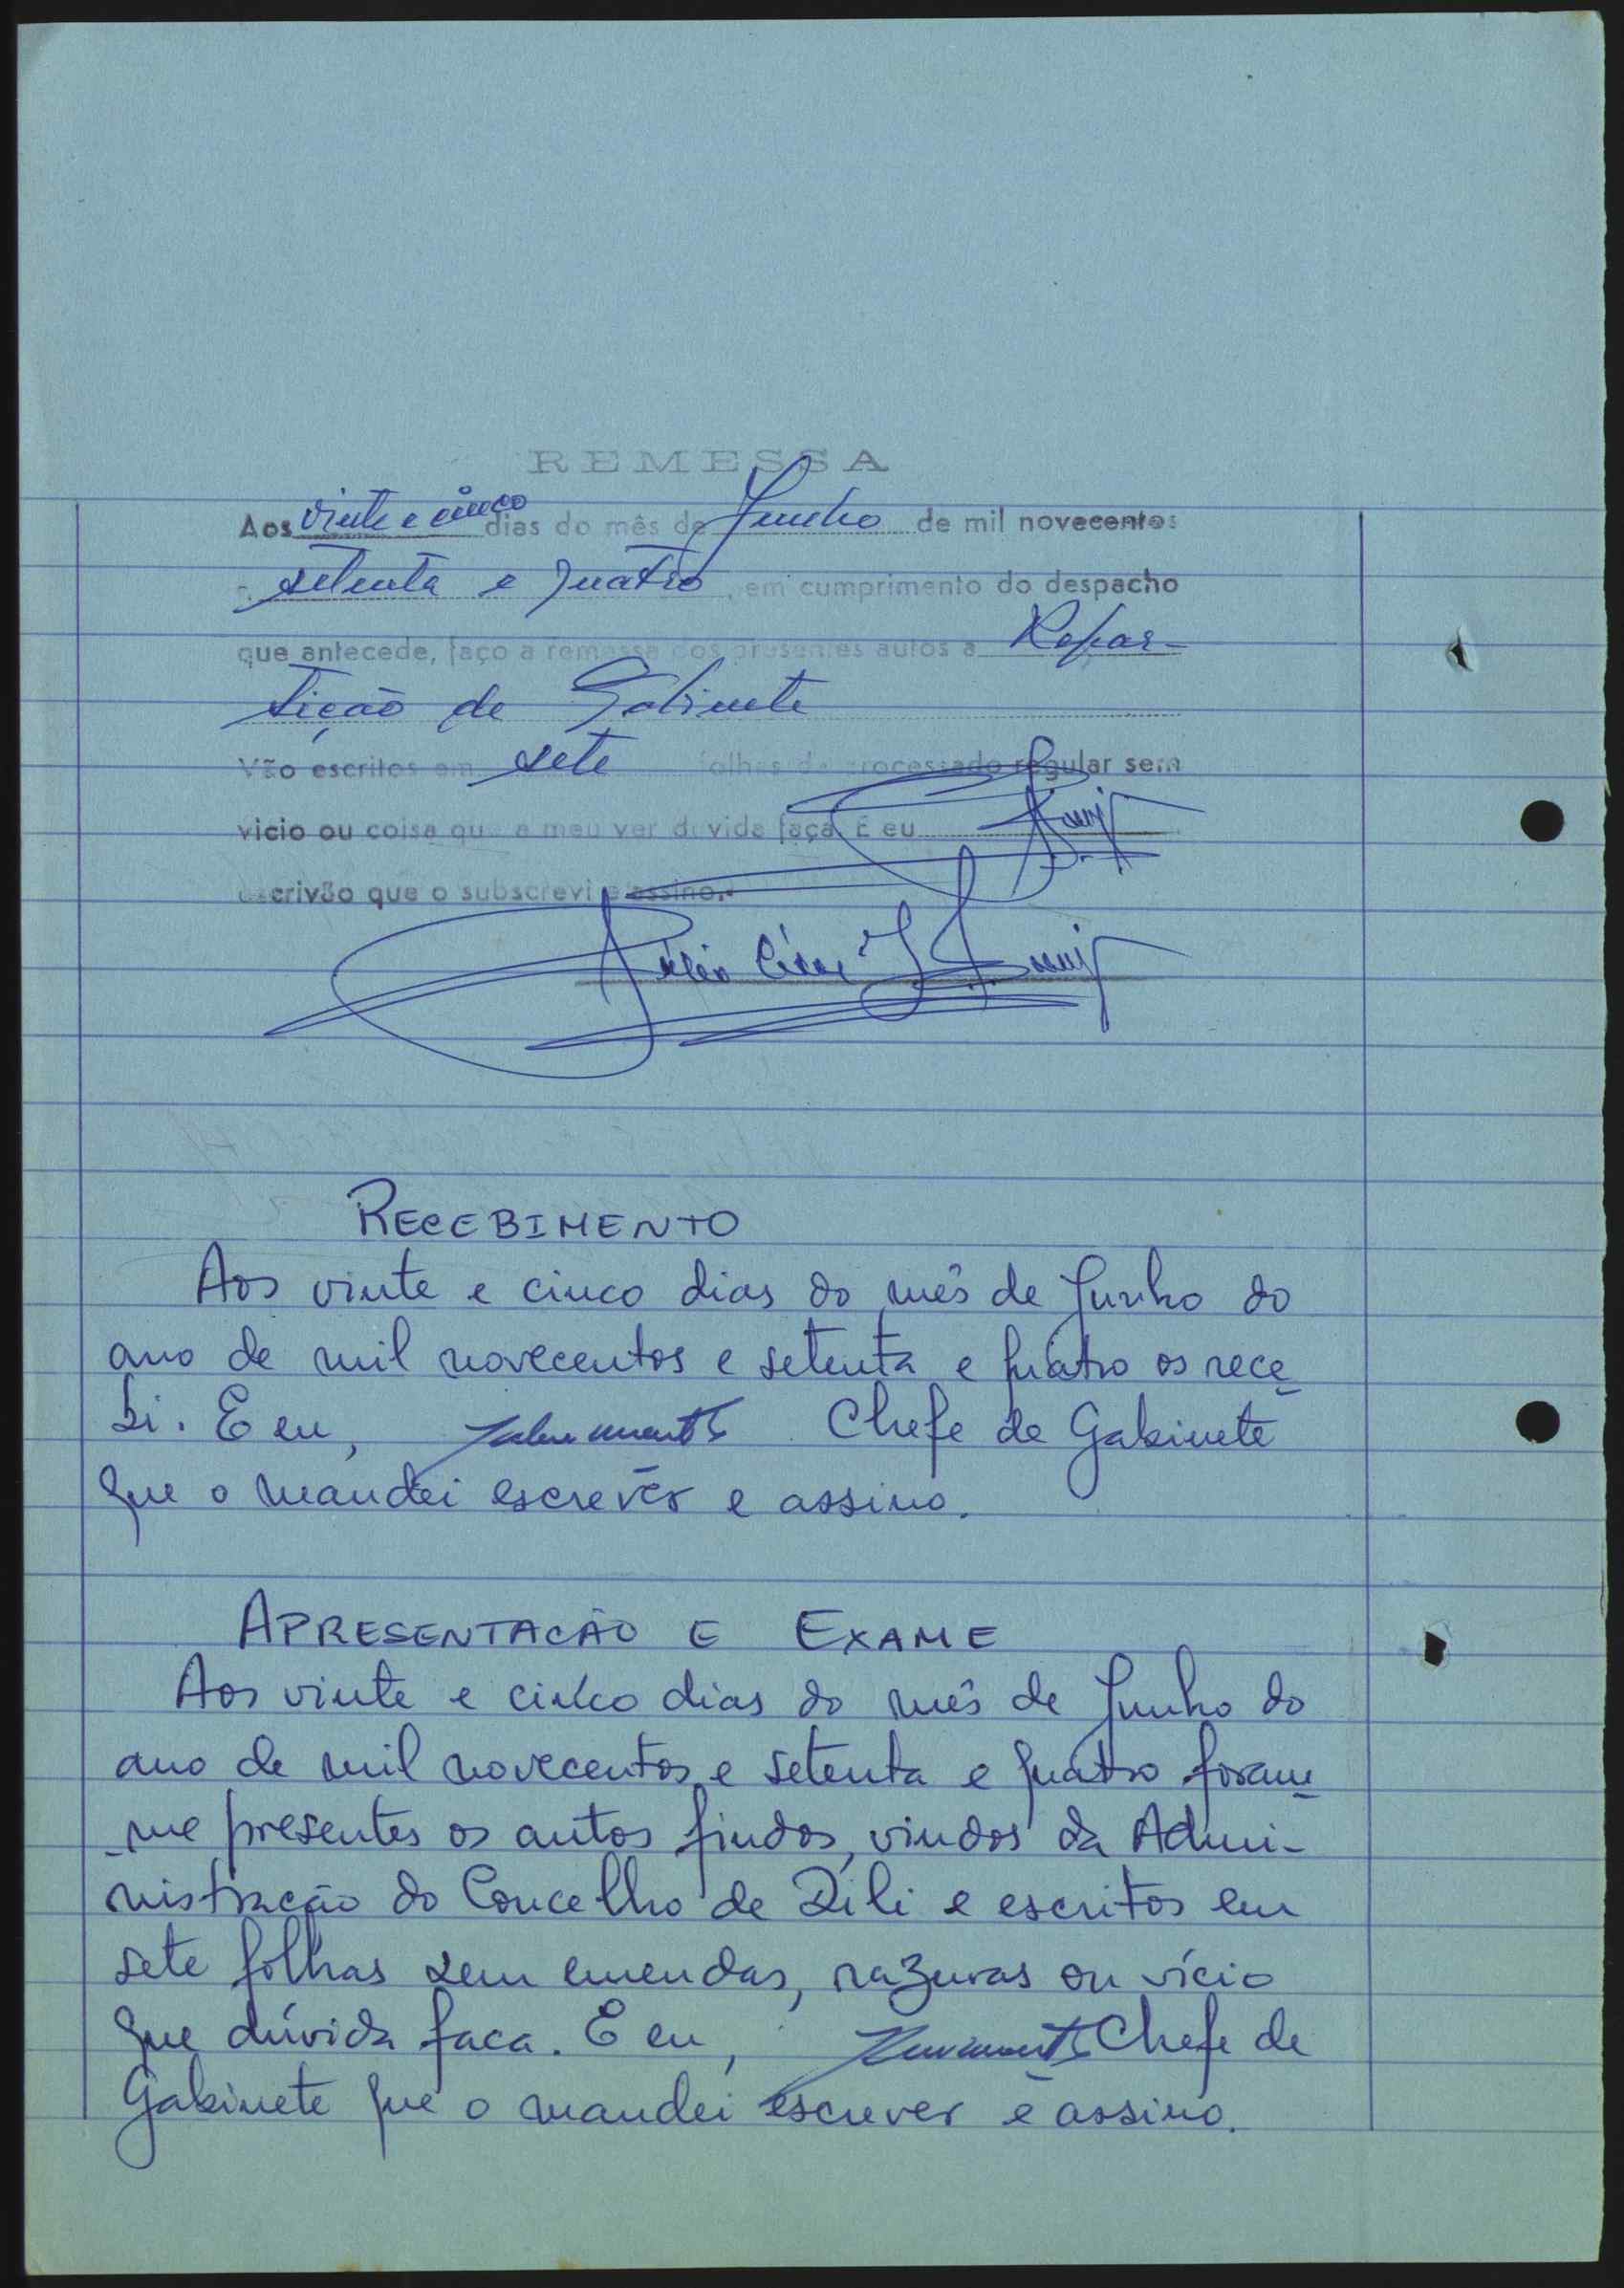 REMESSA
Aos vinte e cinco dias do mês de Junho de mil novecentos
e setenta e quatro, em cumprimento do despacho
que antecede, faço a remessa dos presentes autos a Repar-
tição de Gabinete
Vão escritos em sete folhas de processado regular sem
vicio ou coisa que a meu ver duvida faça. E eu
escrivão que o subscrevi e assino.
Júlio César
RECEBIMENTO
Aos vinte e cinco dias do mês de Junho do
ano de mil novecentos e setenta e quatro os rece
bi. E eu, Chefe de Gabinete
que o mandei escrever e assino.
APRESENTACÃO E EXAME
Aos vinte e cinco dias do mês de Junho do
ano de mil novecentos e setenta e quatro foram
-me presentes os autos findos, vindos da Admi-
nistração do Concelho de Díli e escritos em
sete folhas sem emendas, razuras ou vício
que dúvida faca. E eu, Chefe de
Gabinete que o mandei escrever e assino.